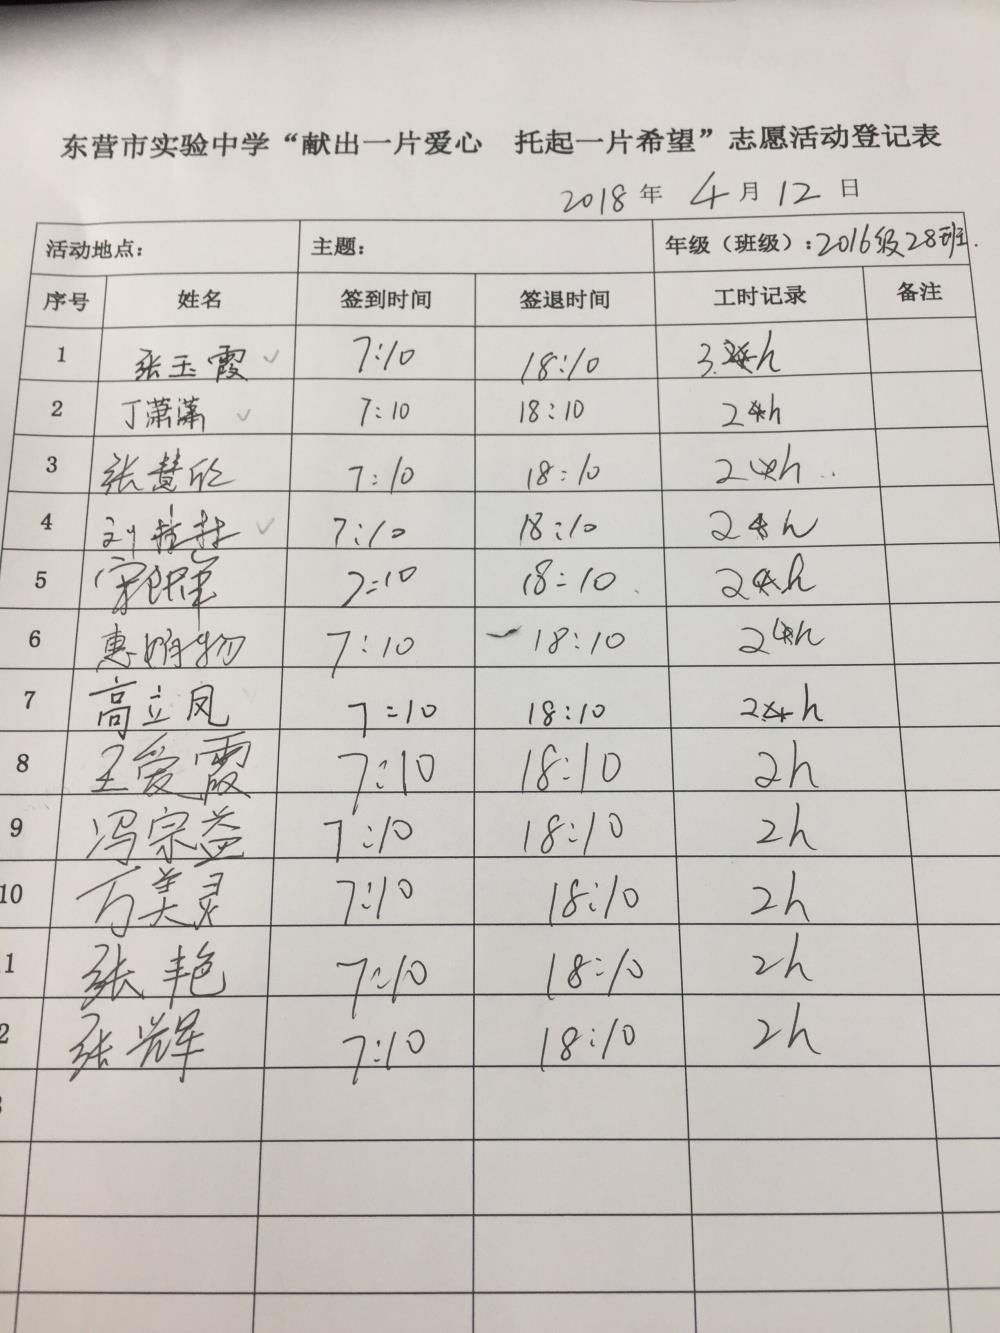 东营市实验中学“献出一片爱心 托起一片希望”志愿活动登记表
2018年4月12日
活动地点： 主题： 年级（班级）：2016级28班.
序号 姓名 签到时间 签退时间 工时记录 备注
1 张玉霞 7:10 18:10 h
2 丁潇潇 7:10 18:10 2h
3 张慧欣 7:10 18:10 2h
4 刘 7:10 18:10 2h
5 宋 7:10 18:10 2h
6 惠 7:10 18:10 2h
7 高立凤 7:10 18:10 2h
8 王爱霞 7:10 18:10 2h
9 冯宗益 7:10 18:10 2h
10 万美灵 7:10 18:10 2h
1 张艳 7:10 18:10 2h
2 张辉 7:10 18:10 2h